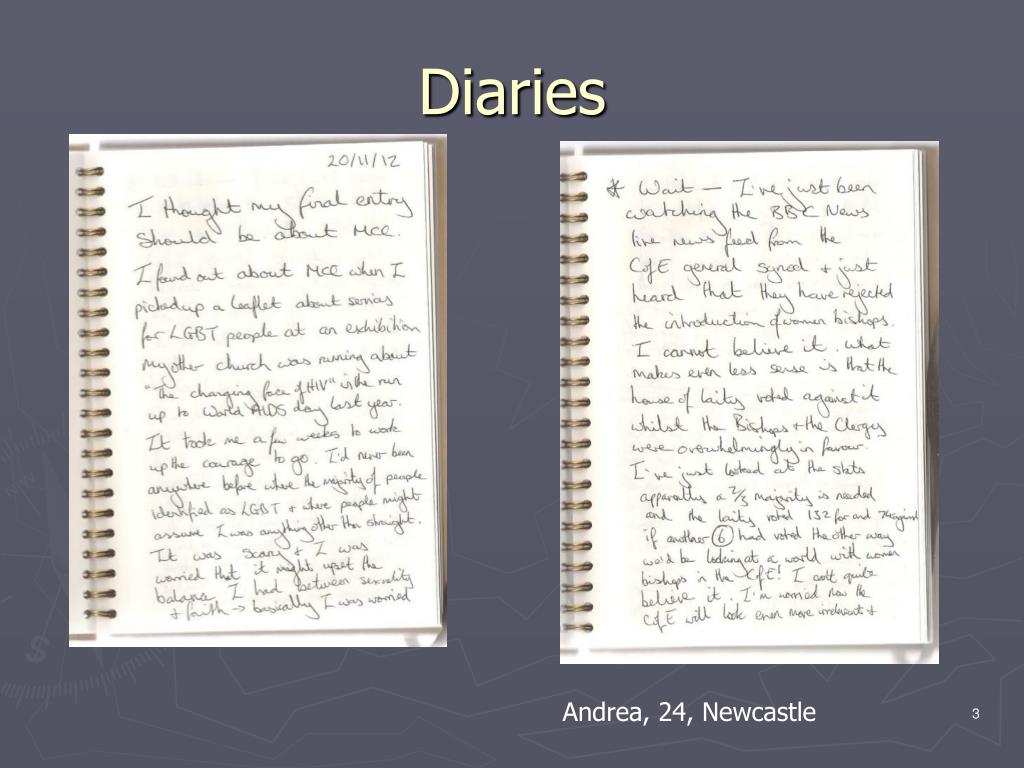 Diaries
20/11/12
I thought my final entry
should be about MCC.
I found out about MCC when I
picked up a leaflet about services
for LGBT people at an exhibition
my other church was running about
"The changing face of HIV" in the run
up to World AIDS day last year.
It took me a few weeks to work
up the courage to go. I'd never been
anywhere before where the majority of people
identified as LGBT & where people might
assume I was anything other than straight.
It was scary & I was
worried that it might upset the
balance I had between sexuality
& faith → basically I was worried
* Wait – I've just been
watching the BBC News
live news feed from the
CofE general synod & just
heard that they have rejected
the introduction of women bishops.
I cannot believe it. What
makes even less sense is that the
house of laity voted against it
whilst the Bishops & the Clergy
were overwhelmingly in favour.
I've just looked at the stats
apparently a 2/3 majority is needed
and the laity voted 132 for and 74 against
if another 6 had voted the other way
we'd be looking at a world with women
bishops in the CofE! I can't quite
believe it. I'm worried now the
CofE will look even more irrelevant &
Andrea, 24, Newcastle
3